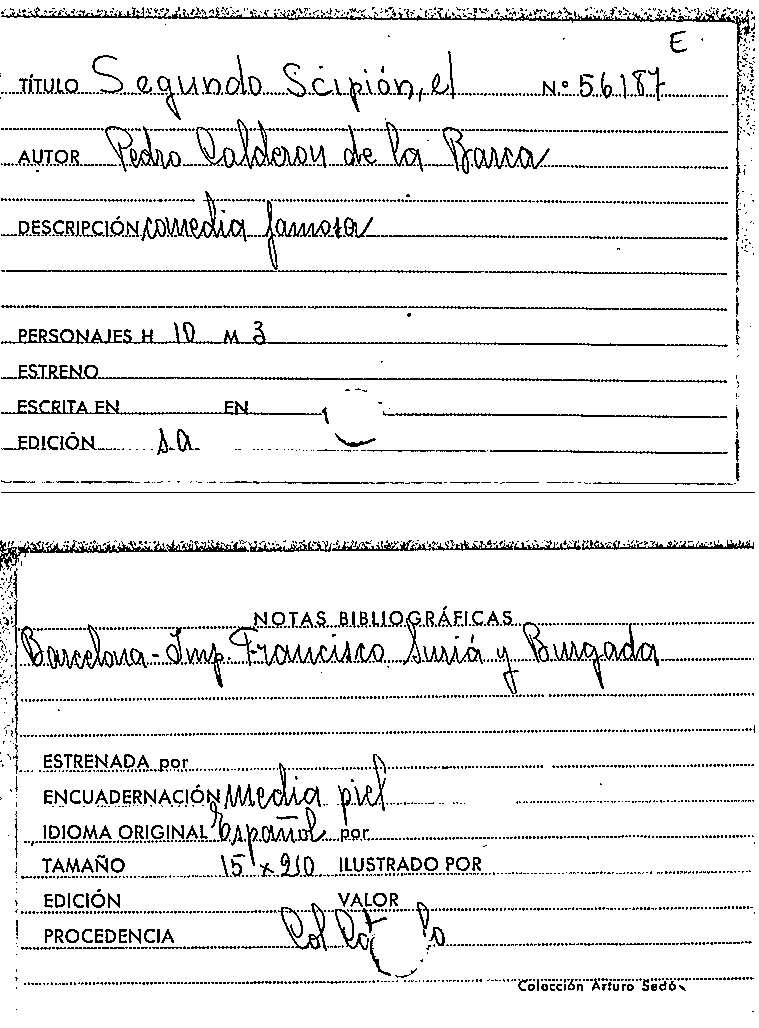 E
TÍTULO Segundo Scipión, el Nº 56187
AUTOR Pedro Calderon de la Barca
DESCRIPCIÓN comedia famosa
PERSONAJES H 10 M 3
ESTRENO
ESCRITA EN EN
EDICIÓN s.a.
NOTAS BIBLIOGRÁFICAS
Barcelona - Imp. Francisco Suriá y Burgada
ESTRENADA por
ENCUADERNACIÓN media piel
IDIOMA ORIGINAL Español por
TAMAÑO 15 x 210 ILUSTRADO POR
EDICIÓN VALOR
PROCEDENCIA Col
Colección Arturo Sedó